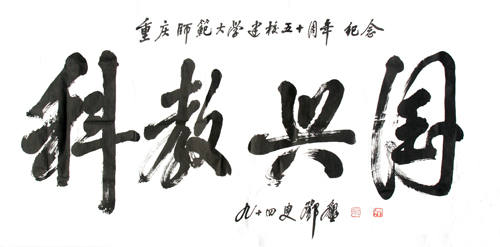 重庆師範大学建校五十周年 纪念
科教兴国
九十四叟 鄧垦